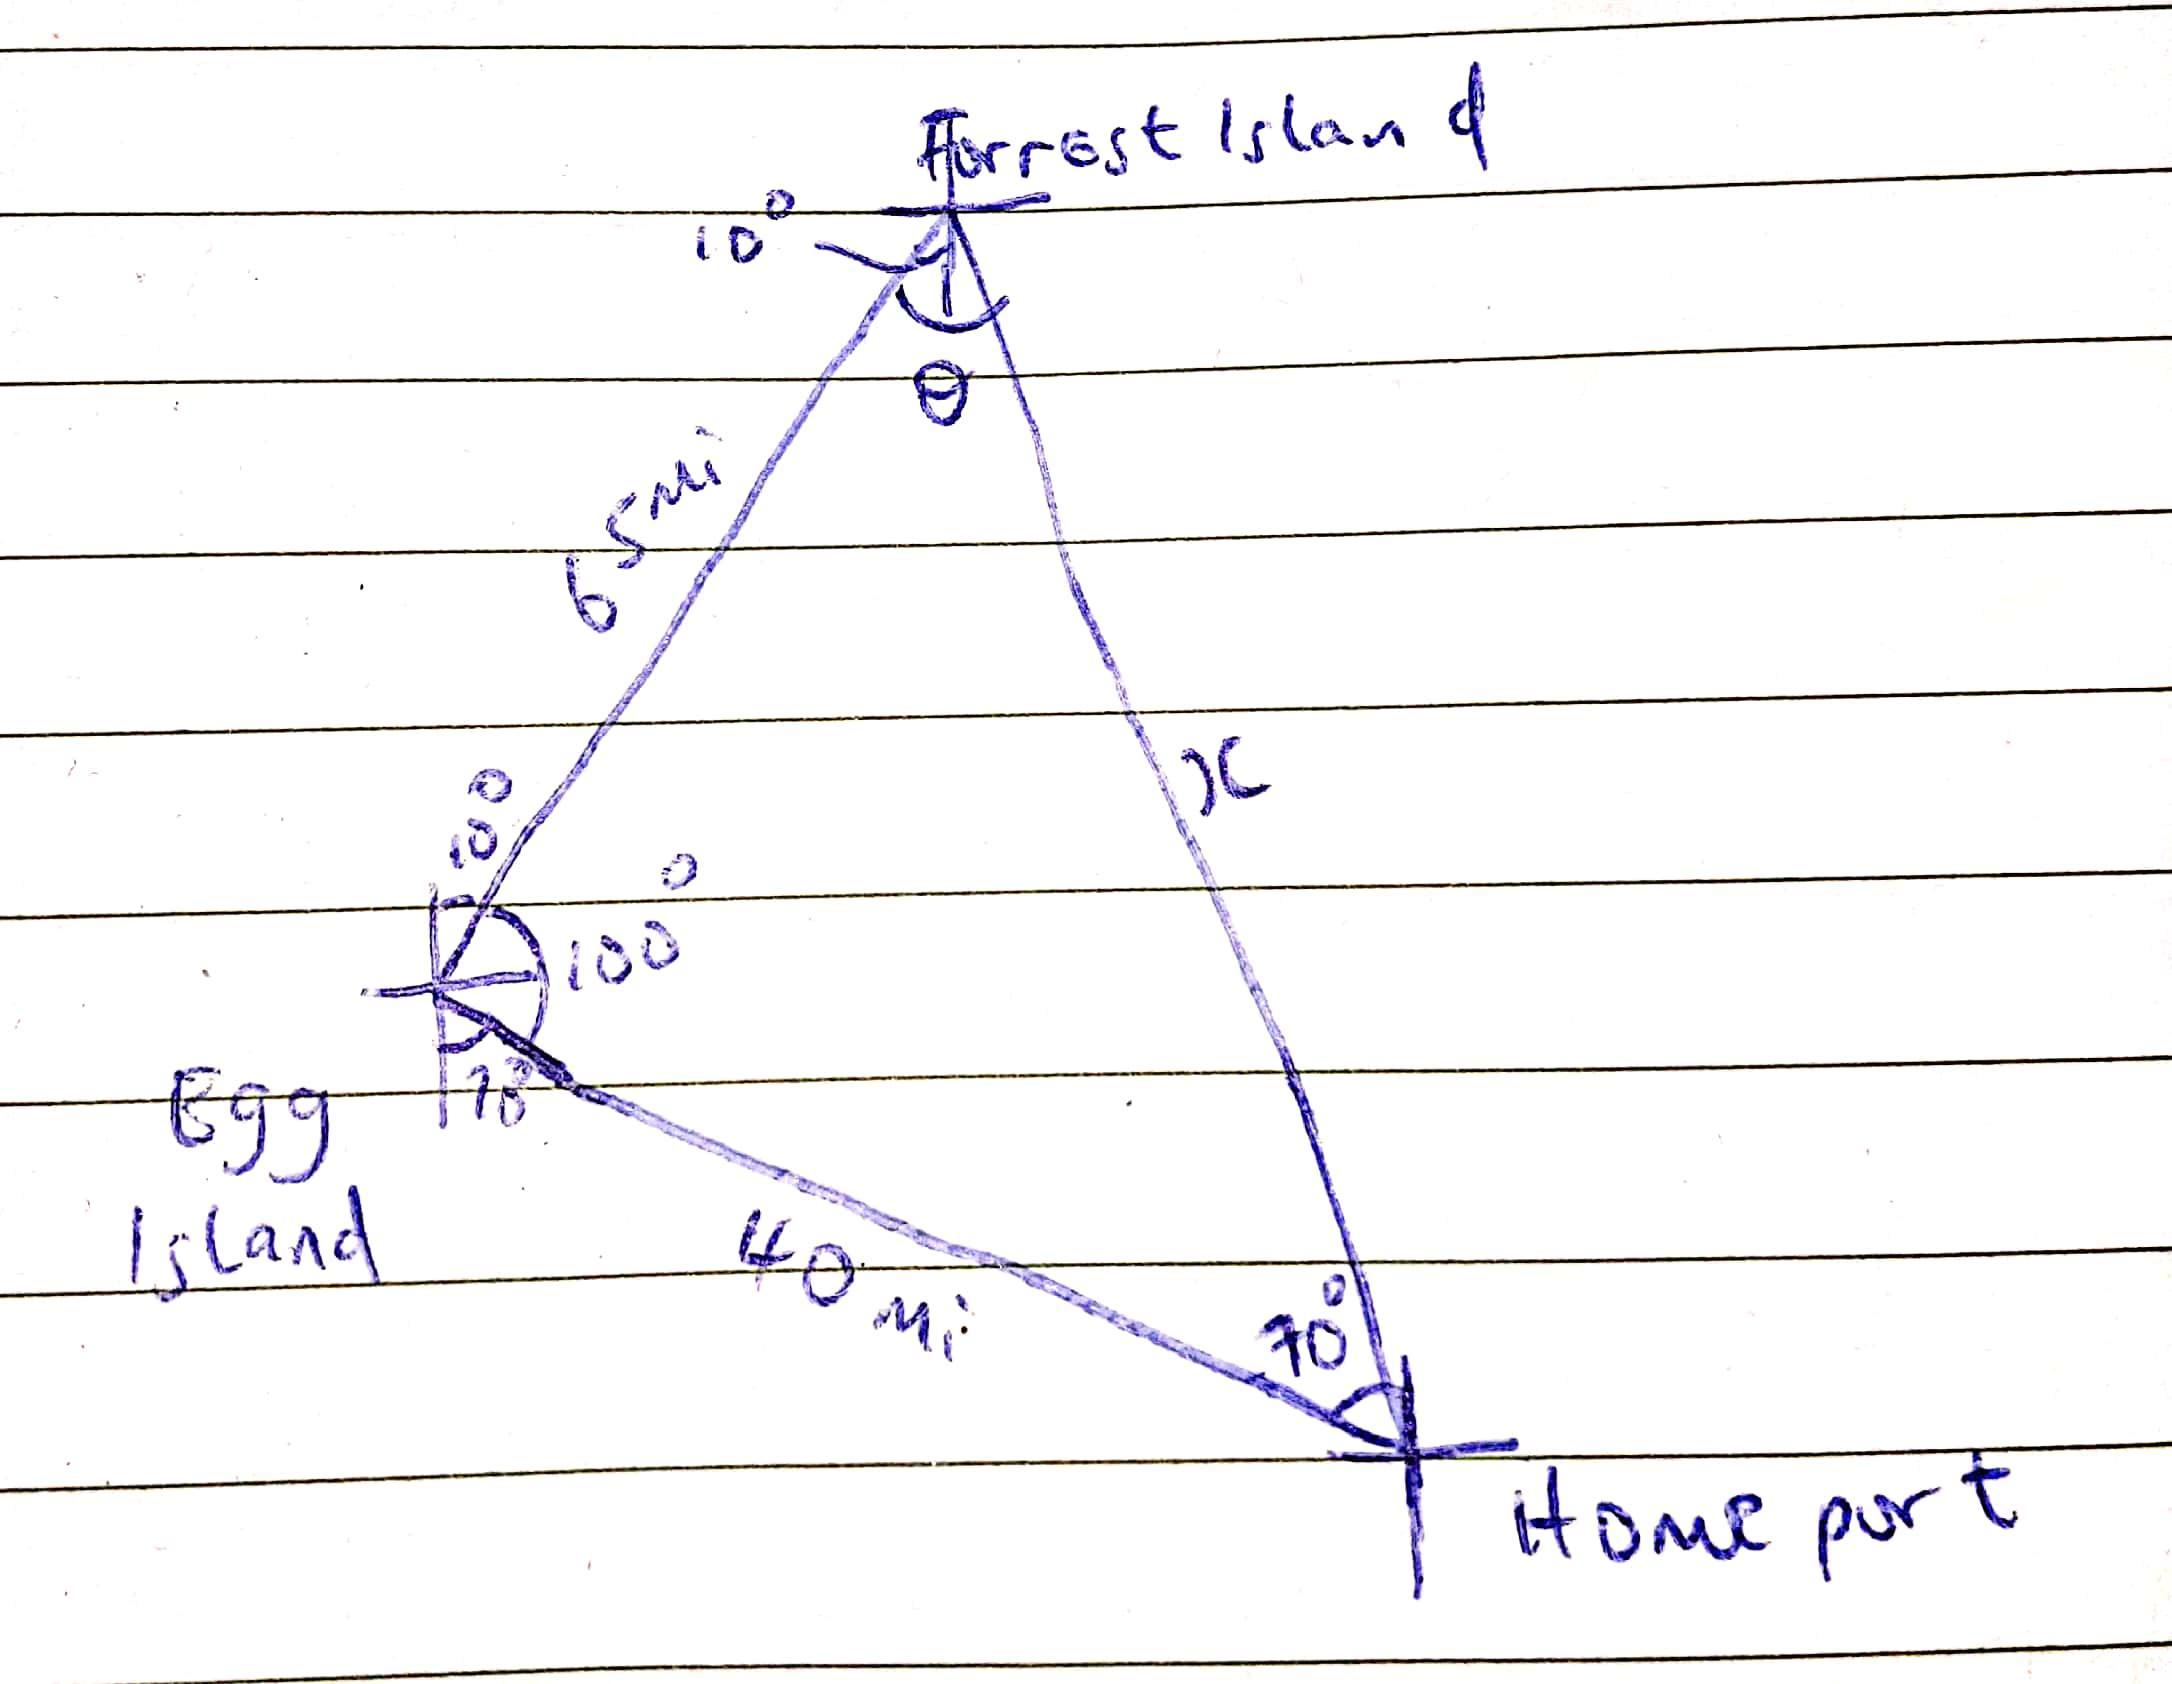 Forrest Island
10°
θ
65 mi
x
10°
100°
70°
Egg
Island
40 mi
70°
Home port